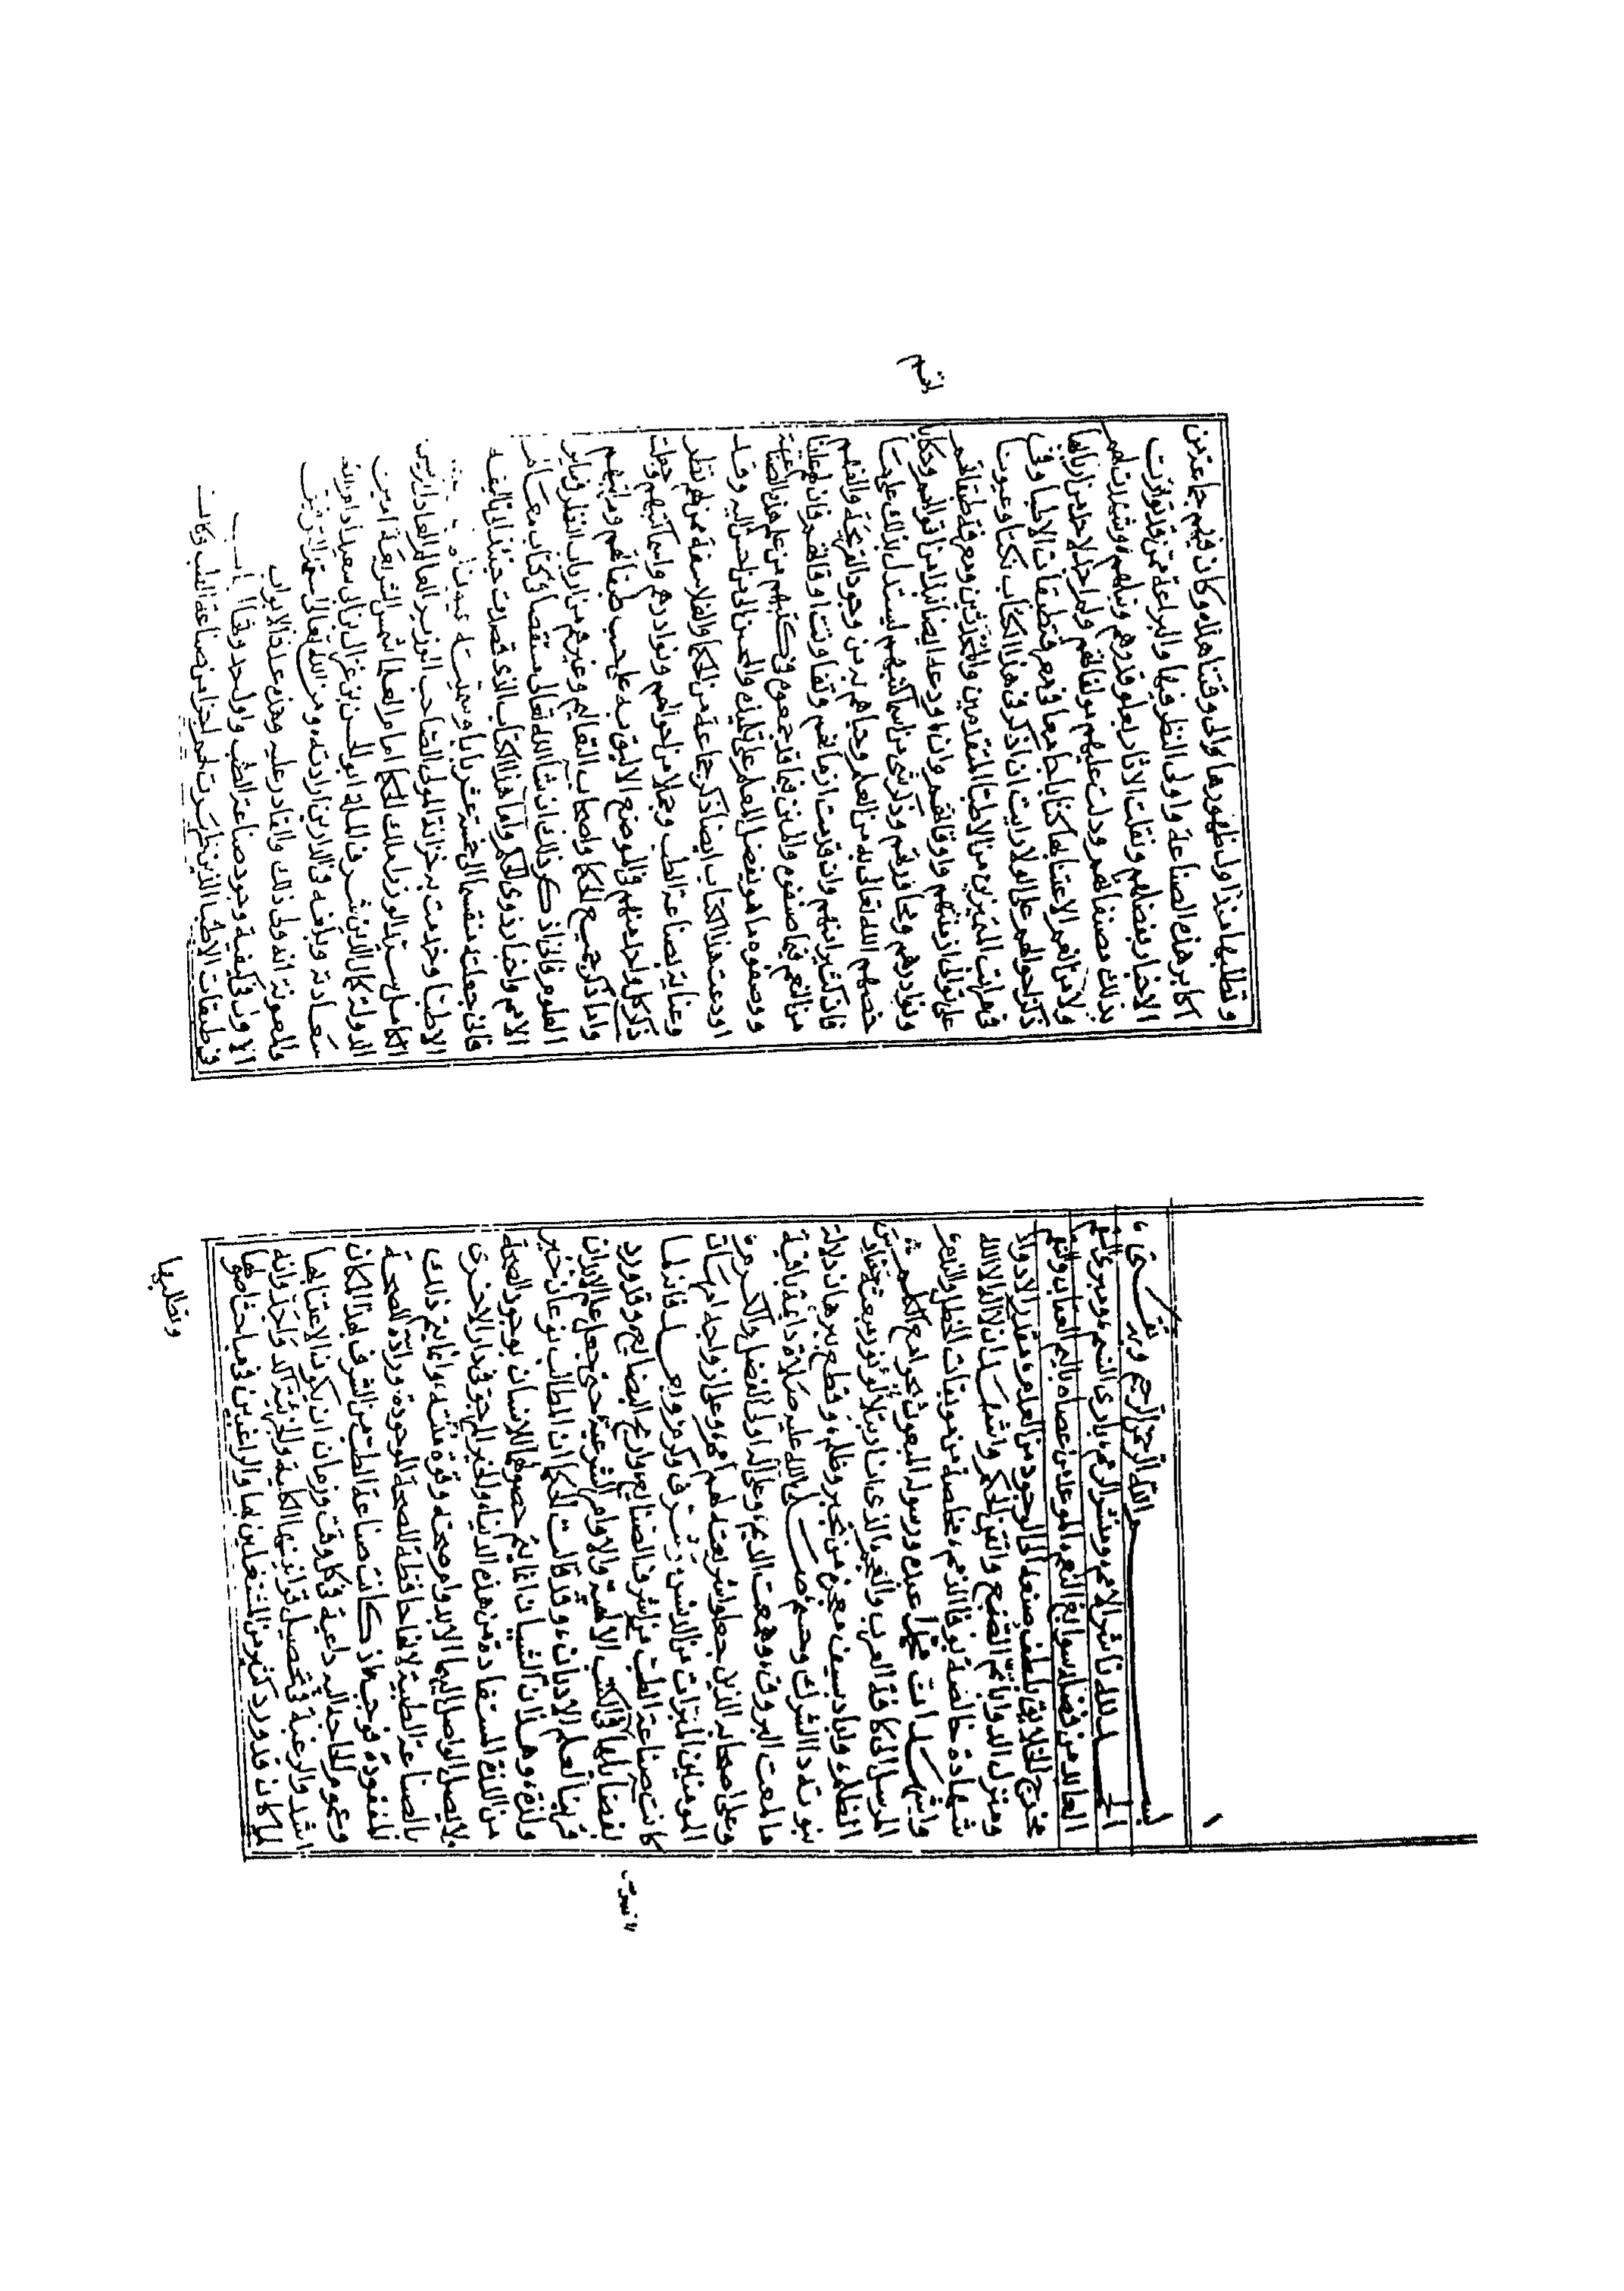 بسم الله الرحمن الرحيم وبه ثقتي
الحمد لله ناشر الامم ومنشر الرمم بارى النسم ومبرى السقم
العايد من فضله بسوابغ النعم الموعد من عصاه باليم العقاب والنقم
مخرج الخلايق بلطف صنعه الى الوجود من العدم ومقدر الادواء
ومنزل الدواء باتم الصنع واتقن الحكم واشهد ان لا اله الا الله
شهادة خالصة بوفا الذمم مخلصة من موبقات الخطل والندم
واشهد ان محمدا عبده ورسوله المبعوث بجوامع الكلم
المرسل الى كافة العرب والعجم الذى انار بتلالؤ نور مبعثه حنادس
الظلم واباد بسيف معجزه من تجبر وظلم وقطع ببرهان دلالة
نبوته داء الشرك وحسم صلى الله عليه صلاة دائمة باقية
ما لمعت البروق وهمعت الديم وعلى اله اولى الفضل والكرم
وعلى اصحابه الذين جعلوا شريعته لهم امم وعلى ازواجه امهات
المومنين المبرات من الدنس وشرف وكرم وبعد فانه لما
كانت صناعة الطب من اشرف الصنايع واربح البضايع وقد ورد
تفضيلها في الكتب الالهية والاوامر الشرعية حتى جعل علم الابدان
قرينا لعلم الاديان وقد قالت الحكما ان المطالب نوعان خير
ولذة وهذان الشيان انما يتم حصولهما للانسان بوجود الصحة
من اللذة المستفادة من هذه الدنيا والخير المرجو في الدار الاخرى
لا يصل الواصل اليهما الا بدوام صحته وقوة بنيته وانما يتم ذلك
بالصناعة الطبية لانها حافظة للصحة الموجودة ورادة للصحة
المفقودة فوجب اذ كانت صناعة الطب من الشرف بهذا المكان
وعموم الحاجة اليها داعية في كل وقت وزمان ان يكون الاعتنا بها
اشد والرغبة في تحصيل قوانينها الكلية والجزئية اكد واجد وانه
لما كان قد ورد كثير من المشتغلين بها والراغبين في مباحث اصولها
وتطلبها
وتطلبها منذ اول ظهورها والى وقتنا هذا وكان فيهم جماعة من
اكابر هذه الصناعة واولى النظر فيها والبراعة ممن قد تواترت
الاخبار بفضلهم ونقلت الاثار بعلو قدرهم ونبلهم وشهدت لهم
بذلك مصنفاتهم ودلت عليهم مولفاتهم ولم اجد لاحد من اربابها
ولا من انعم الاعتنا بها كتابا جامعا في معرفة طبقات الاطبا وفي
ذكر احوالهم على الولا رايت ان اذكر في هذا الكتاب نكتا وعيونا
في مراتب المتميزين من الاطبا المتقدمين والمحدثين ومعرفة طبقاتهم
على توالى ازمنتهم واوقاتهم وان اودعه ايضا نبذا من اقوالهم وحكاياتهم
ونوادرهم ومحاوراتهم وذكر شى من اسما كتبهم ليستدل بذلك على ما
خصهم الله تعالى به من العلم وحباهم به من وجود القريحة والفهم
فان كثيرا منهم وان قدمت ازمانهم وتفاوتت اوقاتهم فان لهم علينا
من النعم فيما صنفوه والمنن فيما قد جمعوه في كتبهم من علم هذه الصناعة
ووصفوه ما هو بفضل المعلم على تلميذه والمحسن الى من احسن اليه وقد
اودعت هذا الكتاب ايضا ذكر جماعة من الحكما والفلاسفة ممن لهم نظر
وعناية بصناعة الطب وجملا من احوالهم ونوادرهم واسما كتبهم وجعلت
ذكر كل واحد منهم في الموضع الاليق به على حسب طبقاتهم ومراتبهم
واما ذكر جميع الحكما واصحاب التعاليم وغيرهم من ارباب النظر في ساير
العلوم فانى اذكر ذلك ان شا الله تعالى مستقصا في كتاب معالم
الامم واخبار ذوى الحكم واما هذا الكتاب الذى قصدت حينئذ الى تاليفه
فانى جعلته منقسما الى خمسة عشر بابا وسميته عيون
الاطبا وخدمت به خزانة المولى الصاحب الوزير العالم العادل
الكامل سيد الوزرا ملك الحكما امام العلما شمس الشريعة امين
الدولة كمال الدين شرف الملة ابو الحسن بن غزال بن ابى سعيد ادام الله
سعادته وبلغه في الدارين ارادته ومن الله تعالى استمد التوفيق
والمعونة انه ولى ذلك والقادر عليه وهذه عدة الابواب
الاول في كيفية وجود صناعة الطب واول حدوثها الباب
في طبقات الاطبا الذين ظهرت لهم اجزا من صناعة الطب وكانت